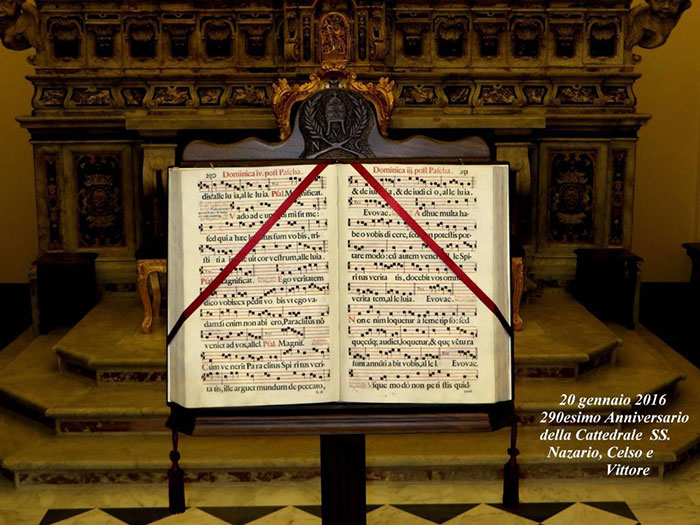 250 Dominica iv. post Pascha.
disalle luia,alle luia. Psal. Magnificat.
Vado ad e um qui misit me:
sed qui a hæc tus sum vobis, tri-
sti ti a vit cor vestrum,alle luia.
Magnificat. Ego veritatem
dico vobis:expedit vobis vt ego va-
dam:si enim non abi ero,Paraclitus nõ
veniet ad vos,allel. Psal. Magnif.
Cum ve nerit Pa raclitus Spi ritus veri-
ta tis, ille arguet mundum de peccato,
Dominica iij. post Pascha. 251
& de iu & de iudi ci o, alle luia.
Evovac. Adhuc multa ha-
be o vobis di cere, sed non potestis por-
tare modo: cũ autem vene rit ille Spi-
ritus verita tis, docebit vos omnem
verita tem,al le luia. Evovac.
Non e nim loquetur à seme tip so: sed
quęcũq; audiet,loquetur, & quę vẽtu ra
sunt annũti a bit vo bis, alle luia. Evovac.
Vsque modò non pe ti stis quid-
20 gennaio 2016
290esimo Anniversario
della Cattedrale SS.
Nazario, Celso e
Vittore